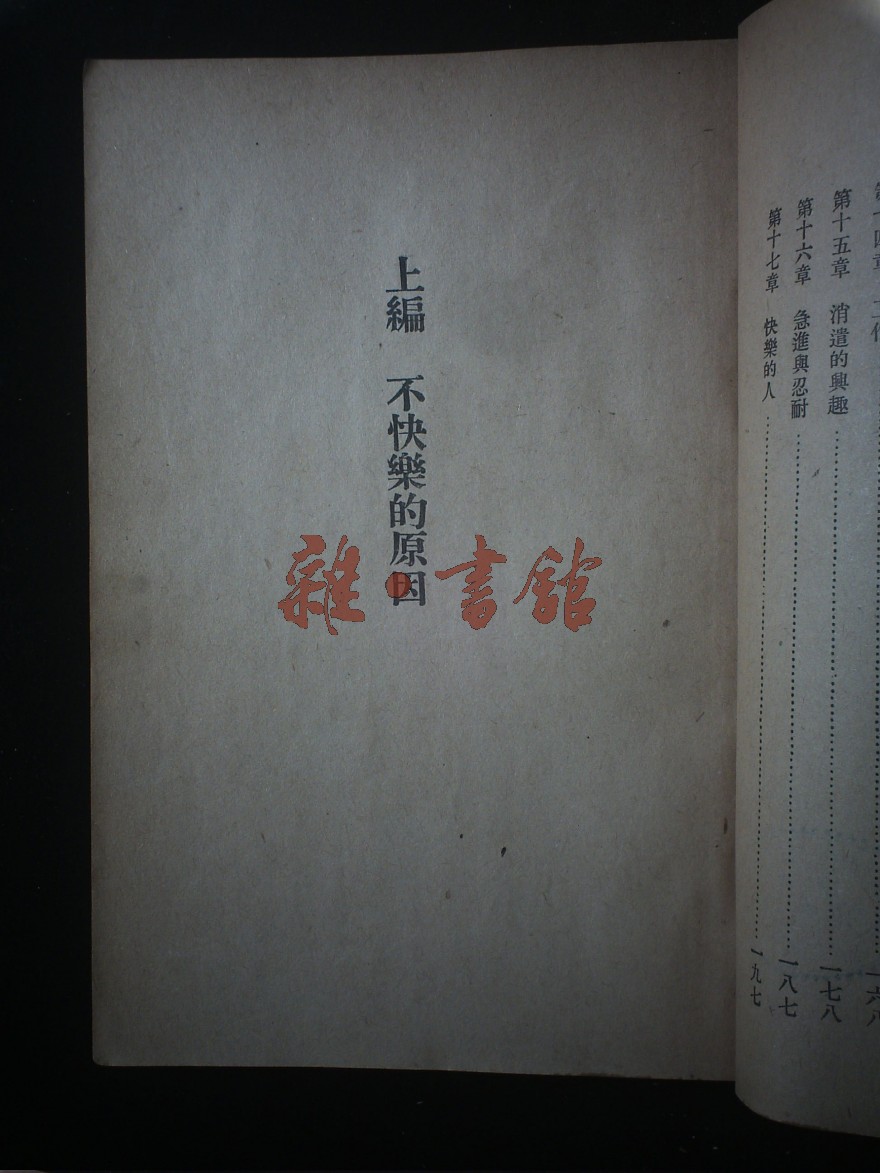 第十四章 工作 一六八
第十五章 消遣的興趣 一七八
第十六章 急進與忍耐 一八七
第十七章 快樂的人 一九七
上編 不快樂的原因
雜·書館